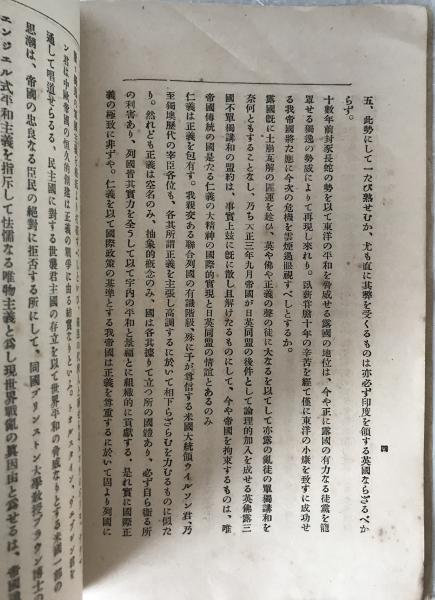 四
五、此勢にして一たび熟せむか、尤も直に其弊を受くるものは亦必ず印度を領する英國ならざるべか
らず。
十數年前封豕長蛇の勢を以て東洋の平和を脅威せる露國の地位は、今や正に露國の有力なる徒黨を籠
罩せる獨逸の勢威によりて再現し來れり。臥薪嘗膽十年の辛苦を經て僅に東洋の小康を致すに成功せ
る我帝國將た應に今次の危機を雲煙過眼視すべしとするか。
露國既に土崩瓦解の匪運を趁ひ、英や佛や正義の聲の徒に大なるを以てして亦露の亂徒の單獨講和を
奈何ともすることなし、乃ち大正三年九月帝國が日英同盟の後件として論理的加入を成せる英佛露三
國不單獨講和の盟約は、事實上玆に既に散し且解けたるものにして、今や帝國を拘束するものは、唯
帝國傳統の國是たる仁義の大精神の國際的實現と日英同盟の情誼とあるのみ
仁義は正義を包有す。我親交ある聯合列國の有識階級、殊に予が尊信する米國大統領ウイルソン君、乃
至獨墺歷代の宰臣各位も、各其所謂正義を主張し高調するに於いて相下らざらむを力むるものに似た
り。然れども正義は空名のみ、抽象的槪念のみ、國は各其據りて立つ所の國體あり、必ず自ら衞る所
の利害あり、列國皆其實力を全うして以て宇内の平和と景福とに組織的に貢獻する、是れ實に國際正
義の極致に非ずや。仁義を以て國際政策の基準とする我帝國は正義を尊重するに於いて固より列國に
ン君は中歐帝國の恒久的創建は正義の戰爭に由る結實なりといふ。トルスタイン、ヴェブレン
通して唱道せらるる、民主國に對する世襲君主國の存立を以て世界平和の脅威なりとする米國一部の
思潮は、帝國の忠良なる臣民の絶對に拒否する所にして、同國プリンストン大學敎授ブラウン博士の
エンジェル式平和主義を指示して怯懦なる唯物主義と爲し現世界戰亂の眞因由と爲せるは、帝國